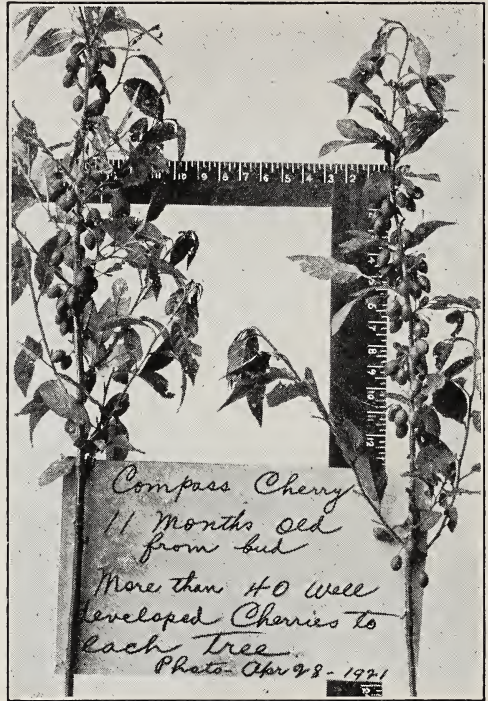 11 10 9 8 7 6 5 4 3 2
Compass Cherry
11 Months old
from bud
More than 40 well
developed Cherries to
each tree
Photo- Apr 28 - 1921